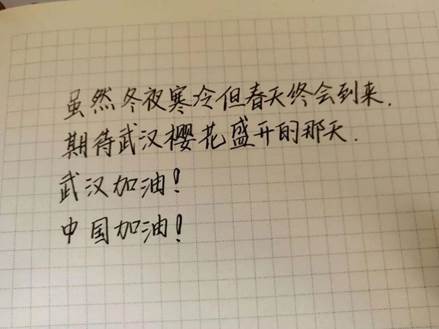 虽然冬夜寒冷但春天终会到来.
期待武汉樱花盛开的那天.
武汉加油!
中国加油!